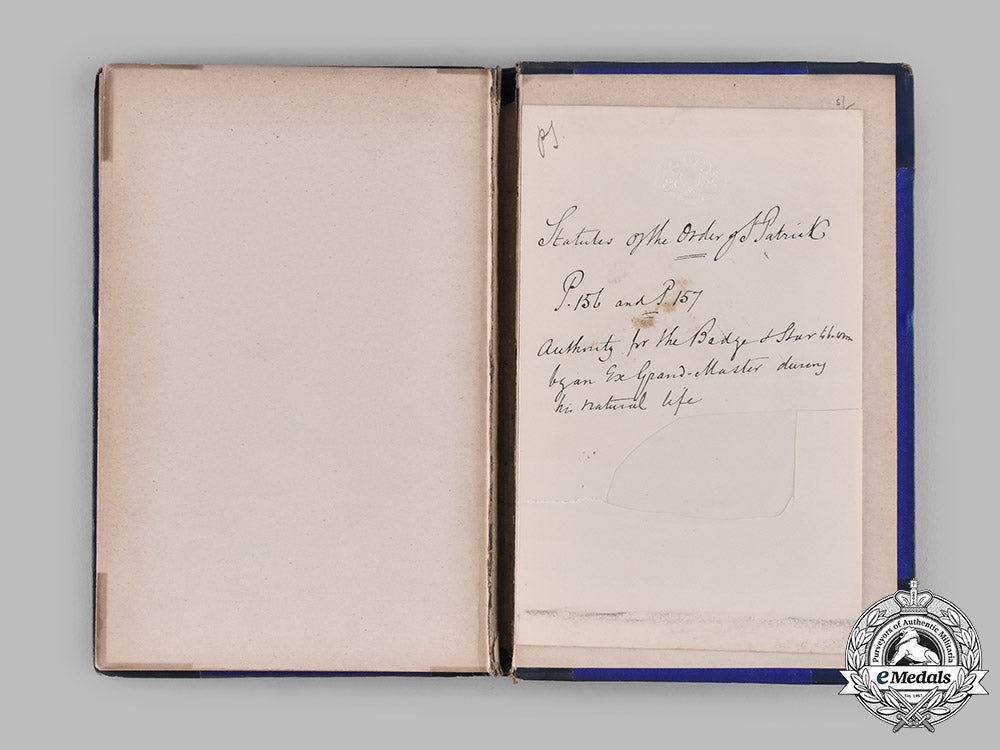 5/-
Statutes of the Order of St Patrick
P. 156 and P 157
Authority for the Badge & Star to be worn
by an Ex Grand-Master during
his natural life
Purveyors of Authentic Militaria
eMedals